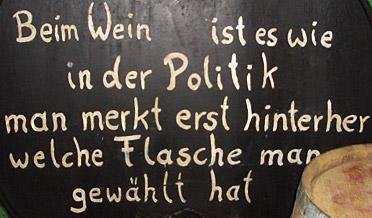 Beim Wein ist es wie
in der Politik
man merkt erst hinterher
welche Flasche man
gewählt hat